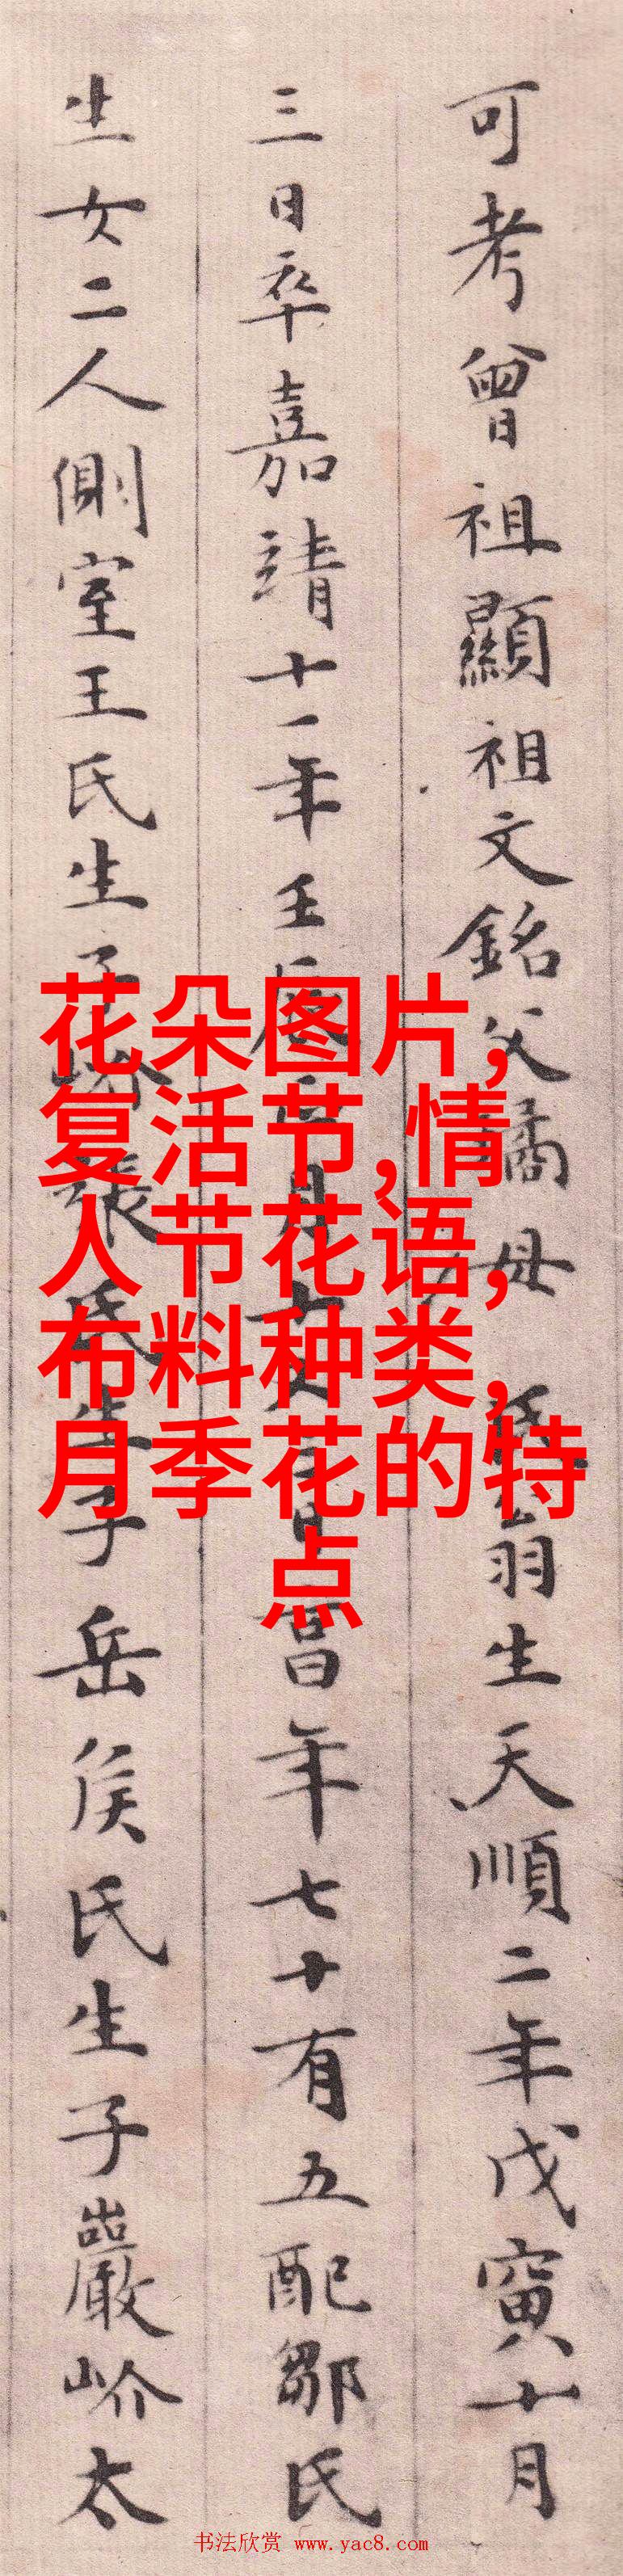 可考曾祖顯祖文銘父潏母 氏翁生天順二年戊寅十月
三日卒嘉靖十一年壬辰 月 日 享年七十有五配鄒氏
生女二人側室王氏生子岎張氏生子岳侯氏生子巖岎太
花朵图片,
复活节,情
人节花语,
布料种类,
月季花的特
点
书法欣赏 www.yac8.com